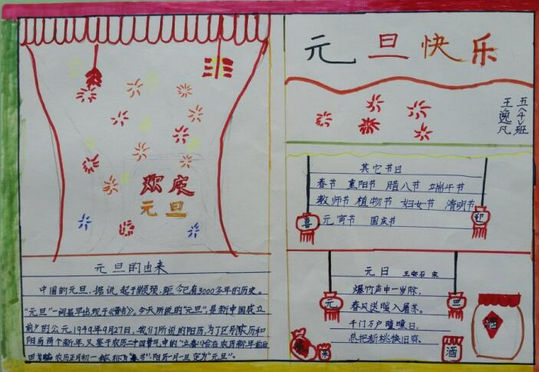 元旦快乐
五(4)班
王逸凡
欢庆
元旦
其它节日
春节 重阳节 腊八节 端午节
教师节 植物节 妇女节 清明节
元宵节 国庆节
喜
元旦的由来
中国的元旦,据说起于颛顼,距今已有3000多年的历史。
"元旦"一词最早出现于《晋书》。今天所说的"元旦",是新中国成立
前夕的公元1949年9月27日,我们所说的阳历,为了区别农历和
阳历两个新年,又鉴于农历二十四节气中的"立春"恰在农历新年前后
农历正月初一 称为"春节",阳历一月一日定为"元旦"。
元日 王安石 宋
爆竹声中一岁除,
春风送暖入屠苏。
千门万户曈曈日,
总把新桃换旧符。
元
旦
酒